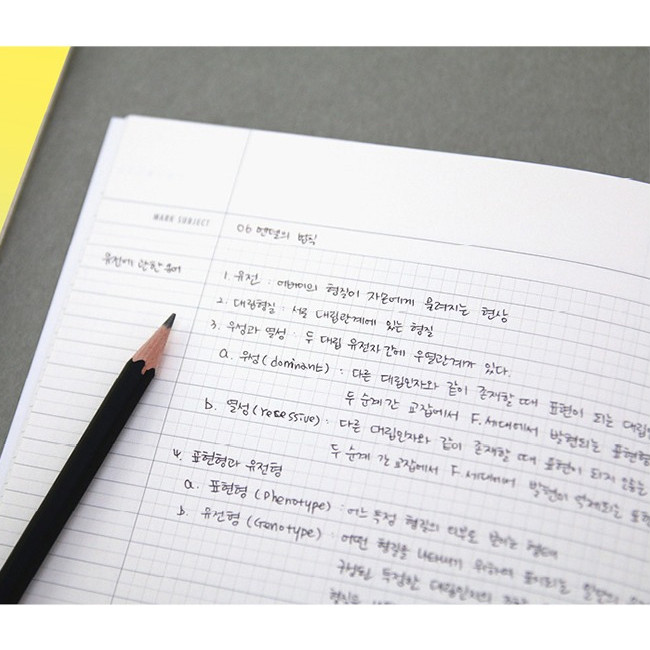 MARK SUBJECT
06 멘델의 법칙
유전에 관한 용어
1. 유전 : 어버이의 형질이 자손에게 물려지는 현상
2. 대립형질 : 서로 대립관계에 있는 형질
3. 우성과 열성 : 두 대립 유전자간에 우열관계가 있다.
a. 우성(dominant) : 다른 대립인자와 같이 존재할 때 표현이 되는
두 순계간 교잡에서 F. 세대에서 발현되는 표현형
b. 열성(recessive) : 다른 대립인자와 같이 존재할 때 표현이 되지 않는
두 순계 간 교잡에서 F. 세대에서 발현이 억제되는
4. 표현형과 유전형
a. 표현형 (Phenotype) : 어느 특정 형질의 외부로
b. 유전형 (Genotype) : 어떤 형질을 나타내기 위하여
특정한 대립인자의